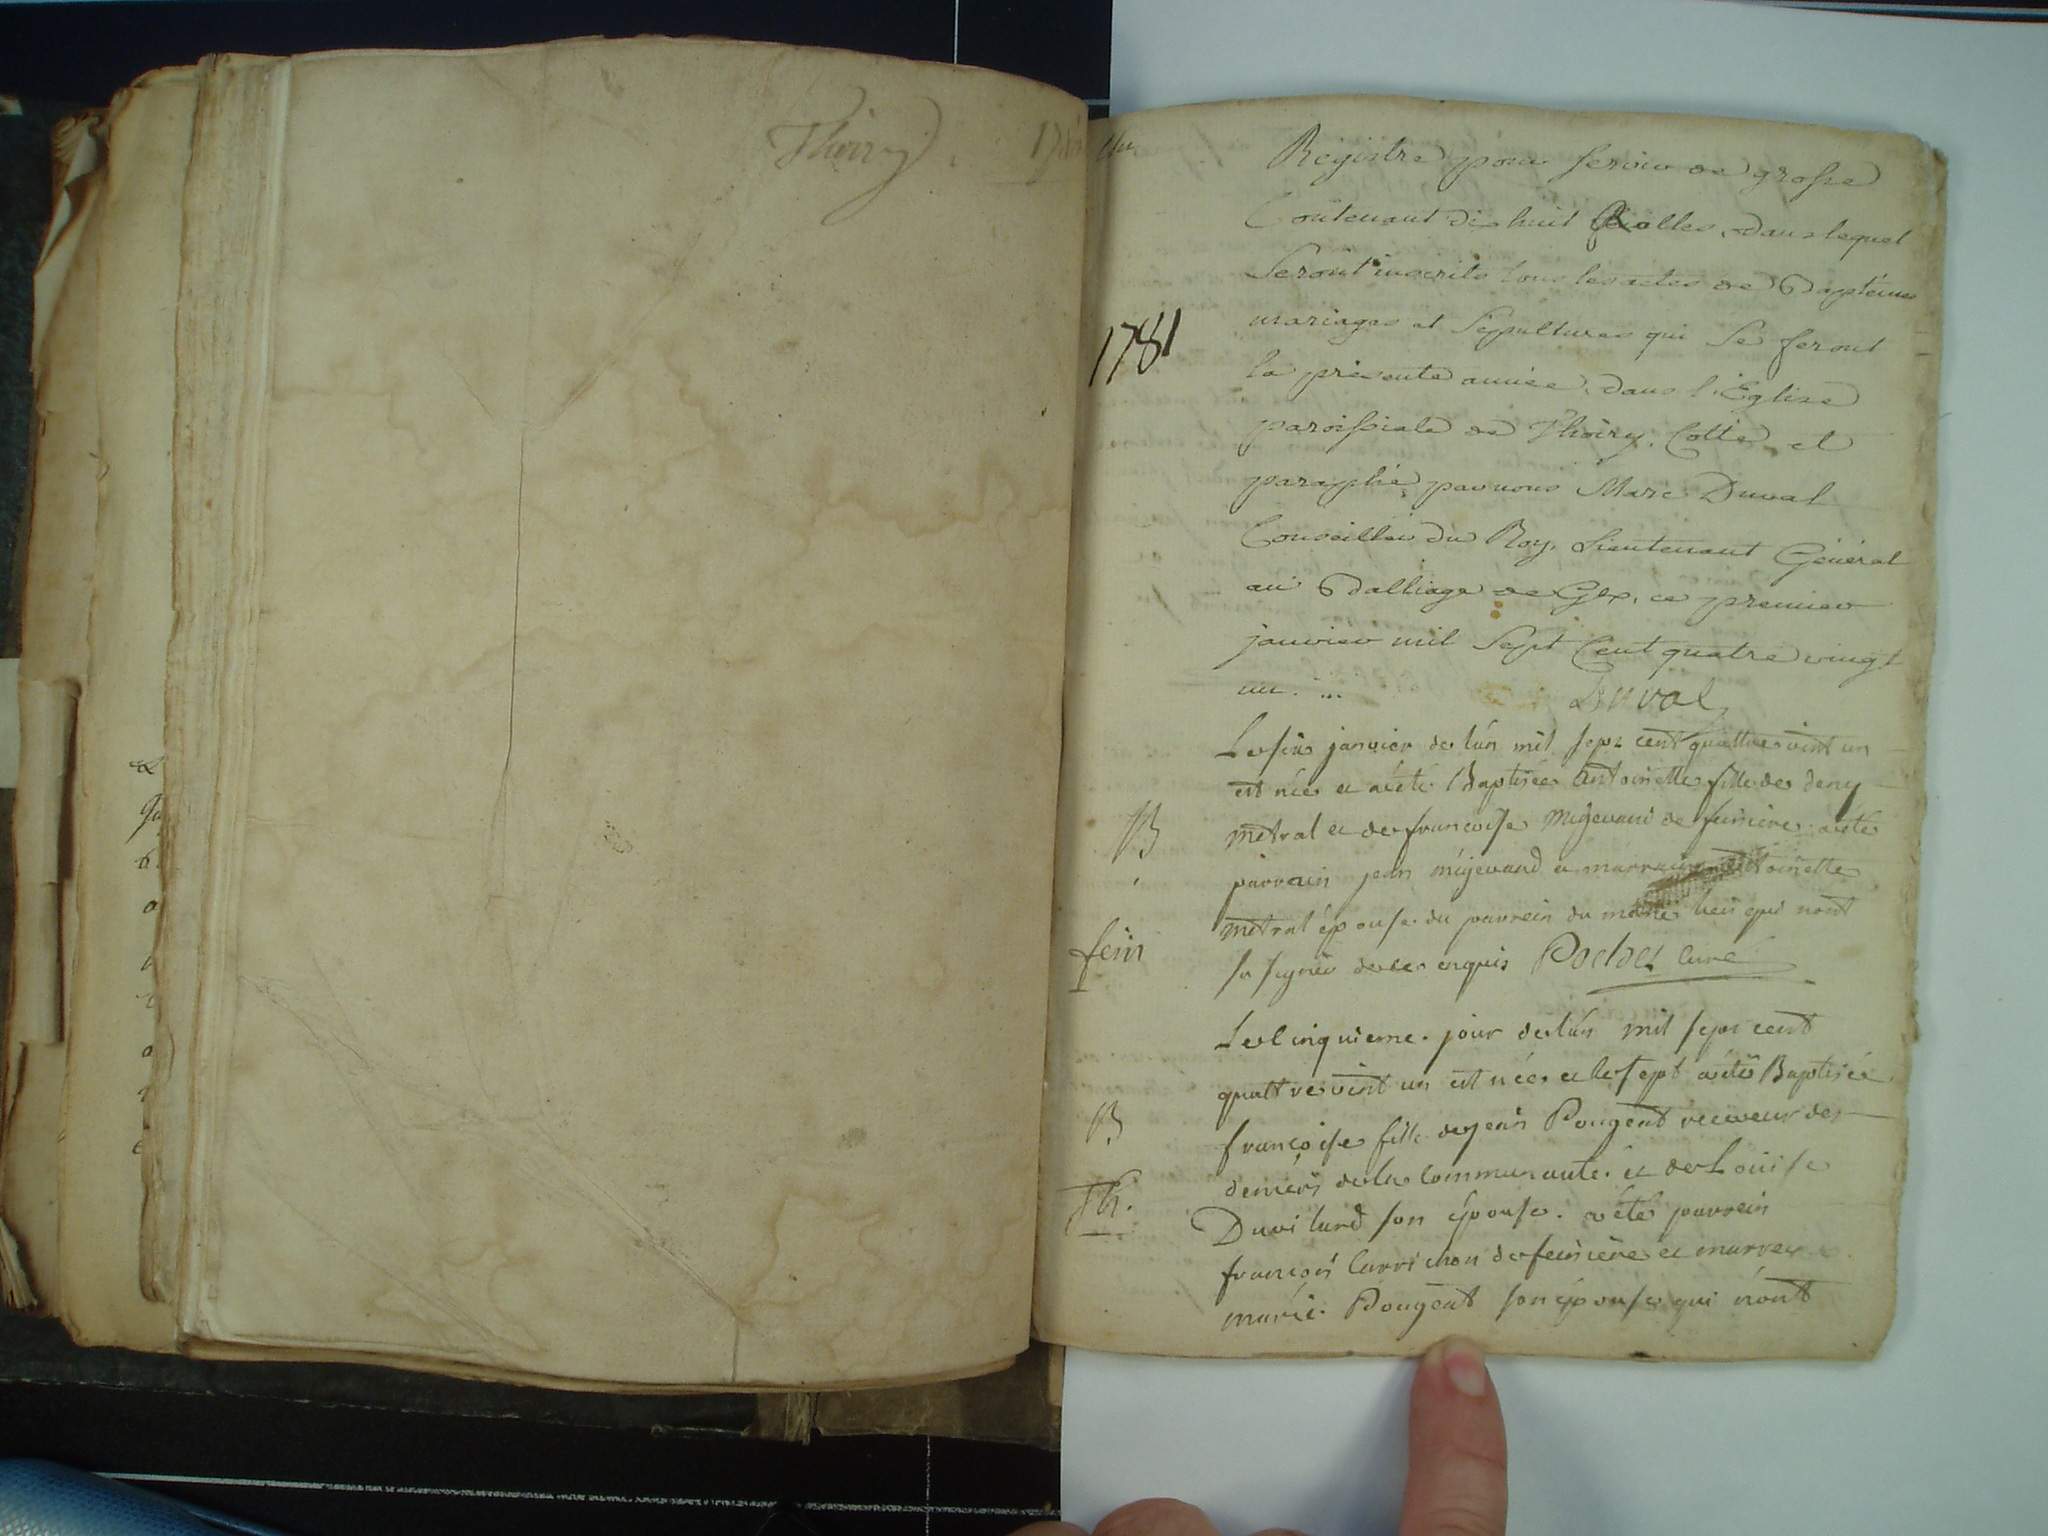 Thoiry
un
Registre pour servir de grosse
Contenant dix huit feuilles, dans lequel
Seront inscrits tous les actes de Baptêmes
mariages et Sépultures qui Se feront
la présente année, dans l'Eglise
paroissiale de Thoiry, Cotté et
paraphé par nous Marc Duval
Conseiller du Roy, Lieutenant Général
au Balliage de Gex, ce premier
janvier mil Sept Cent quatre vingt
un. ...
Duval
1781
Le six janvier de l'an mil sept cent quattre vint un
est née et a été Baptisée Antoinette fille de deny
metral et de françoise Migevand de feniere. a été
parrain jean migevand et marraine
metral épouse du parrein du même lieu qui nont
su signer de ce enquis Pochet Curé
B
fein
Le Cinquieme jour de l'an mil sept cent
quattre vint un est née et le sept a été Baptisée
françoise fille de jean Pougent receveur des
deniers de la Communauté et de Louise
Duvilard son épouse. a été parrein
françois Carrichon de feiniere et marreine
marie Pougent son épouse qui n'ont
B
Th.